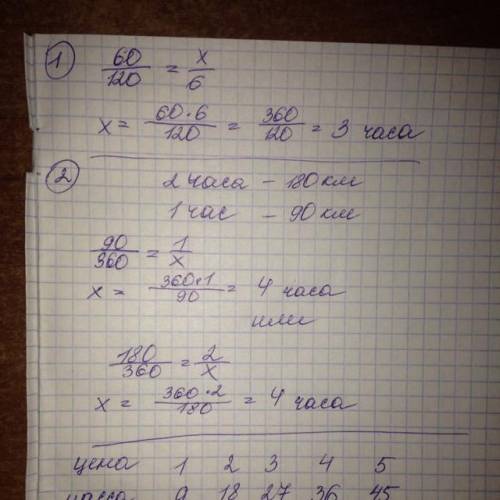 1 60/120 = x/6
x = 60·6/120 = 360/120 = 3 часа
2 2 часа – 180 км
1 час – 90 км
90/360 = 1/x
x = 360·1/90 = 4 часа
или
180/360 = 2/x
x = 360·2/180 = 4 часа
цена 1 2 3 4 5
масса 9 18 27 36 45